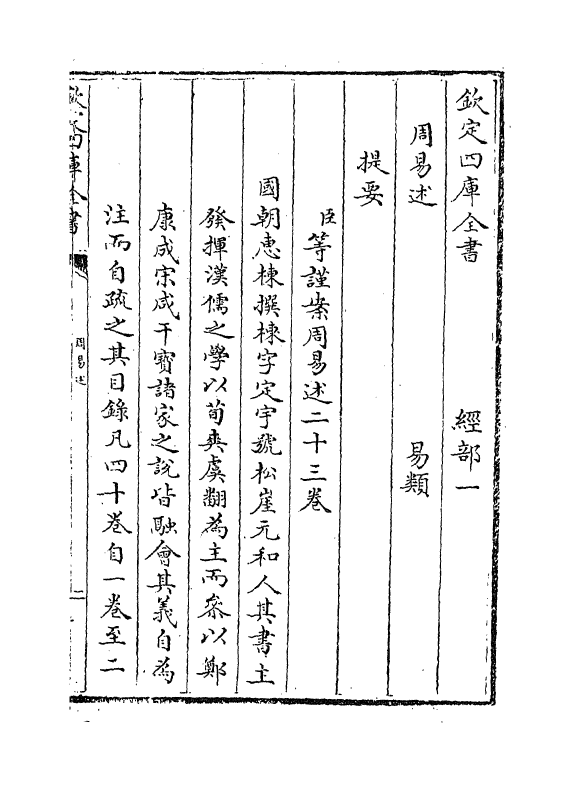 欽定四庫全書　經部一
周易述　易類
提要
臣等謹案周易述二十三卷
國朝惠棟撰棟字定宇號松崖元和人其書主
發揮漢儒之學以荀爽虞翻為主而叅以鄭
康成宋咸干寳諸家之説皆融會其義自為
注而自疏之其目錄凡四十卷自一卷至二
欽定四庫全書
周易述